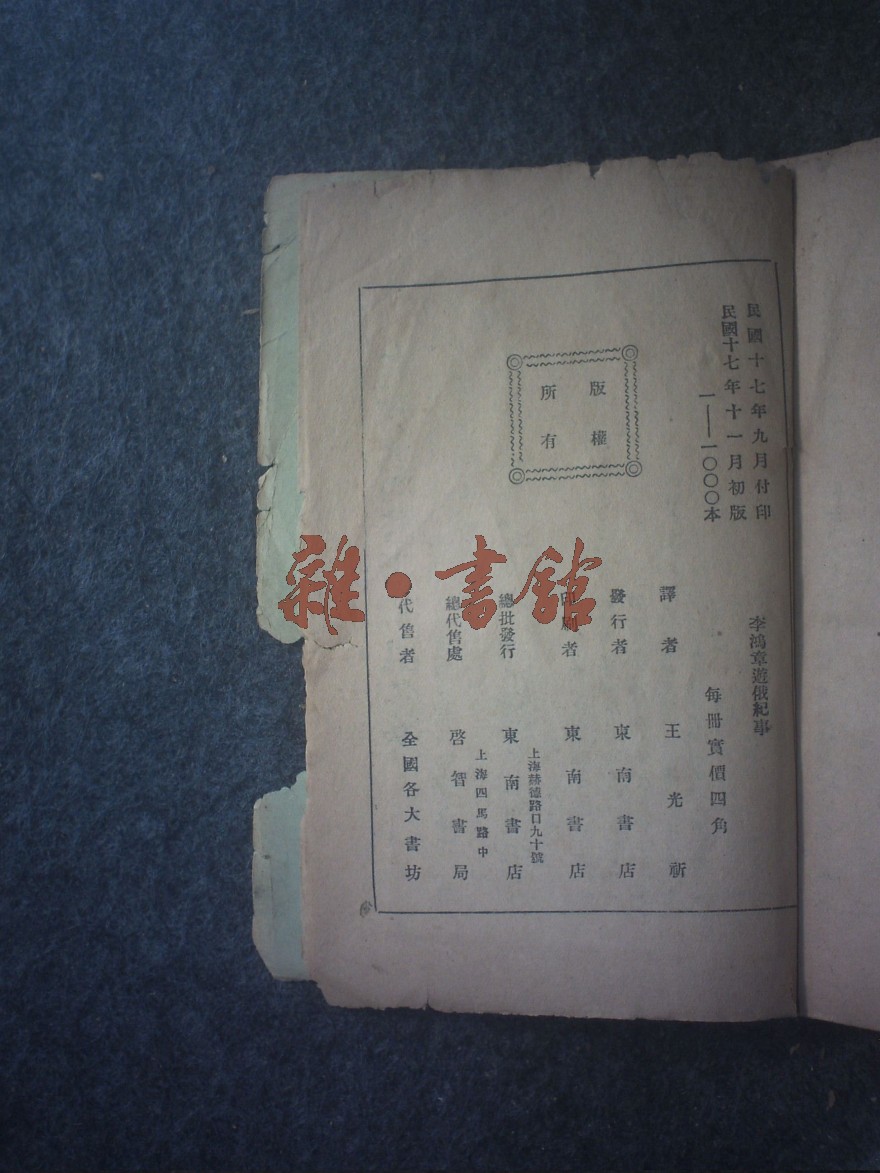 民國十七年九月付印
民國十七年十一月初版
一——一〇〇〇本
李鴻章遊俄紀事
每冊實價四角
版權
所有
譯者 王光祈
發行者 東南書店
印刷者 東南書店
上海赫德路口九十號
總批發行 東南書店
上海四馬路中
總代售處 啓智書局
代售者 全國各大書坊
雜·書館